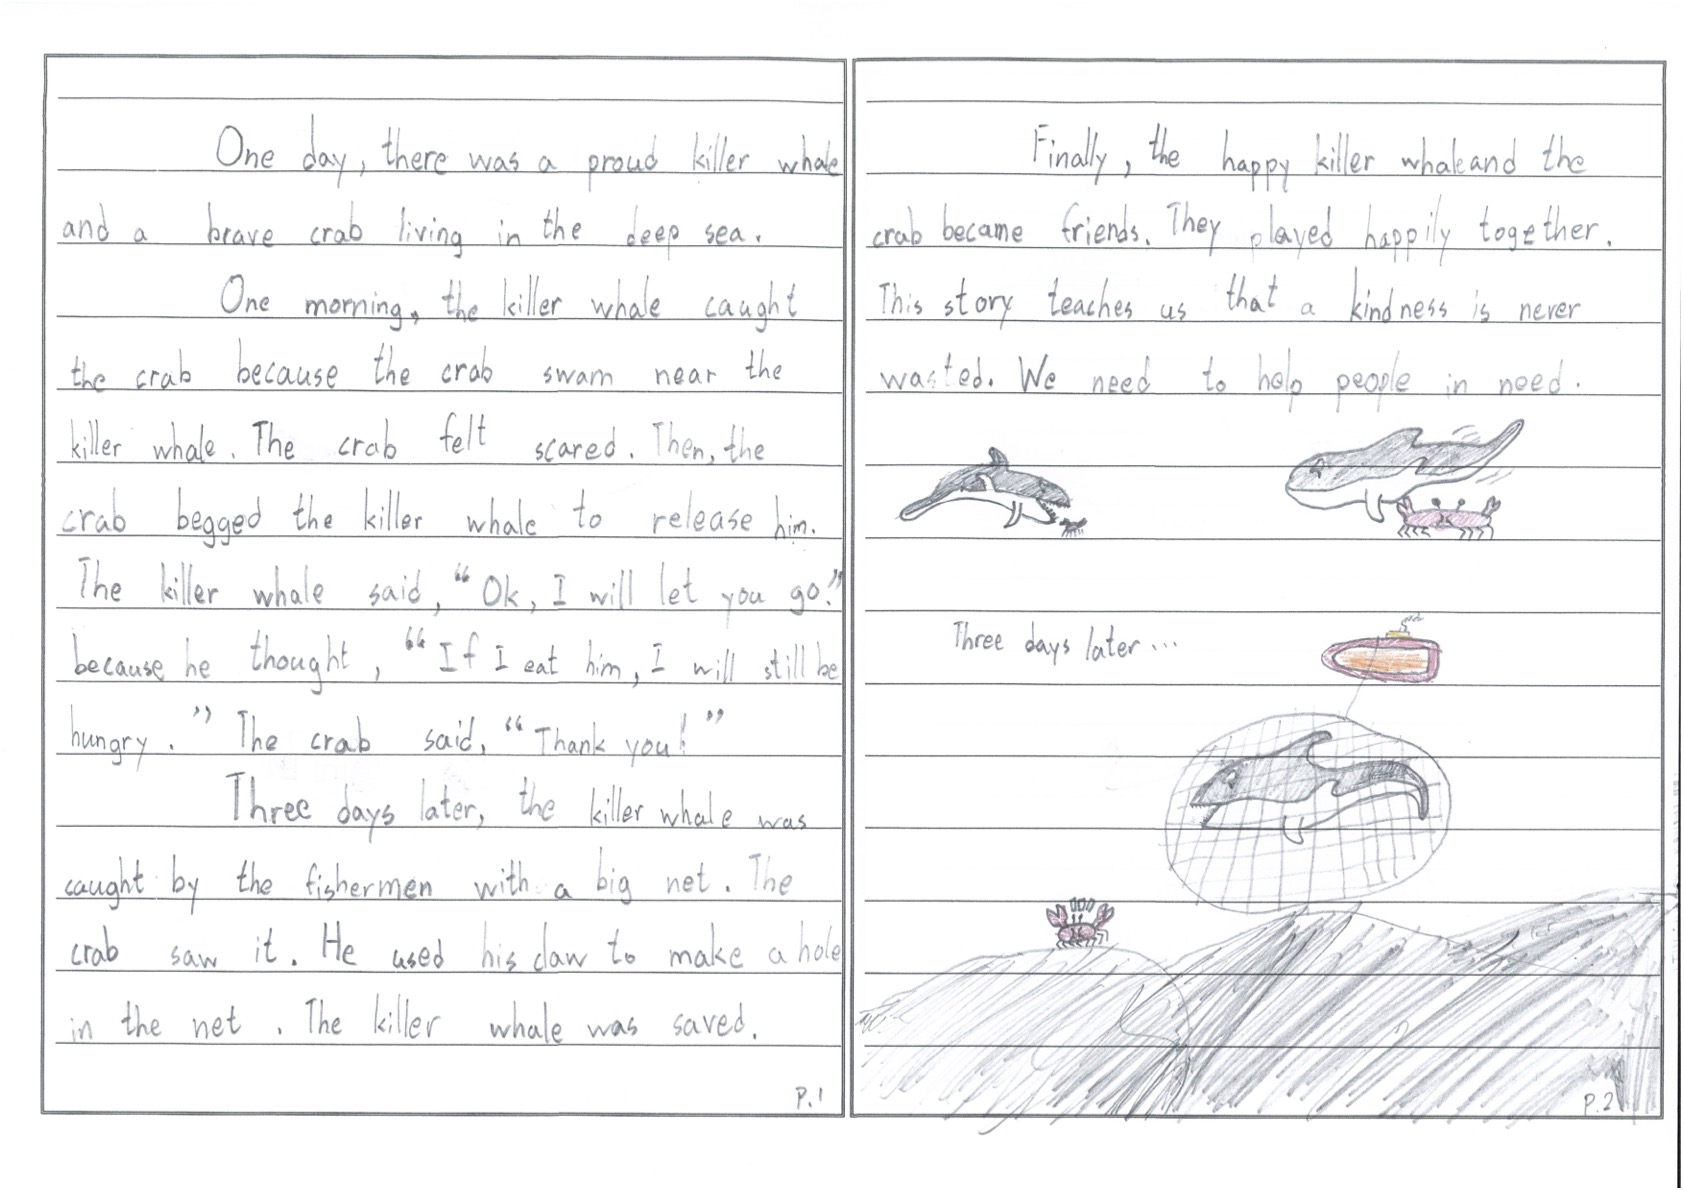 One day, there was a proud killer whale
and a brave crab living in the deep sea.
One morning, the killer whale caught
the crab because the crab swam near the
killer whale. The crab felt scared. Then, the
crab begged the killer whale to release him.
The killer whale said, "Ok, I will let you go."
because he thought, "If I eat him, I will still be
hungry." The crab said, "Thank you!"
Three days later, the killer whale was
caught by the fishermen with a big net. The
crab saw it. He used his claw to make a hole
in the net. The killer whale was saved.
P.1
Finally, the happy killer whale and the
crab became friends. They played happily together.
This story teaches us that a kindness is never
wasted. We need to help people in need.
Three days later...
P.2